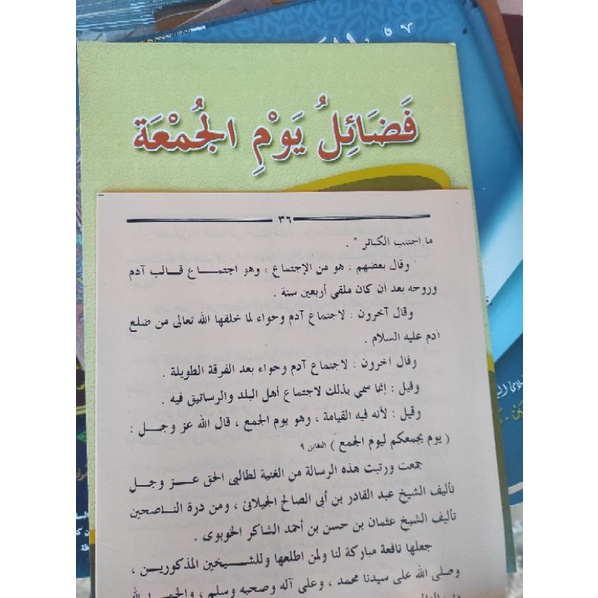 فَضَائِلُ يَوْمِ الْجُمْعَةِ
٣٦
ما اجتنب الكبائر " .
وقال بعضهم : هو من الإجتماع ، وهو اجتماع قالب آدم
وروحه بعد أن كان ملقي أربعين سنة .
وقال آخرون : لاجتماع آدم وحواء لما خلقها الله تعالى من ضلع
آدم عليه السلام .
وقال آخرون : لاجتماع آدم وحواء بعد الفرقة الطويلة .
وقيل : إنما سمي بذلك لاجتماع أهل البلد والرساتيق فيه .
وقيل : لأنه فيه القيامة ، وهو يوم الجمع ، قال الله عز وجل :
( يوم يجمعكم ليوم الجمع ) التغابن ٩
جمعت ورتبت هذه الرسالة من الغنية لطالبى الحق عز وجل
تأليف الشيخ عبد القادر بن أبى الصالح الجيلانى ، ومن درة الناصحين
تأليف الشيخ عثمان بن حسن بن أحمد الشاكر الخوبوى .
جعلها نافعة مباركة لنا ولمن اطلعها وللشيخين المذكورين ،
وصلى الله على سيدنا محمد ، وعلى آله وصحبه وسلم ، والحمد لله